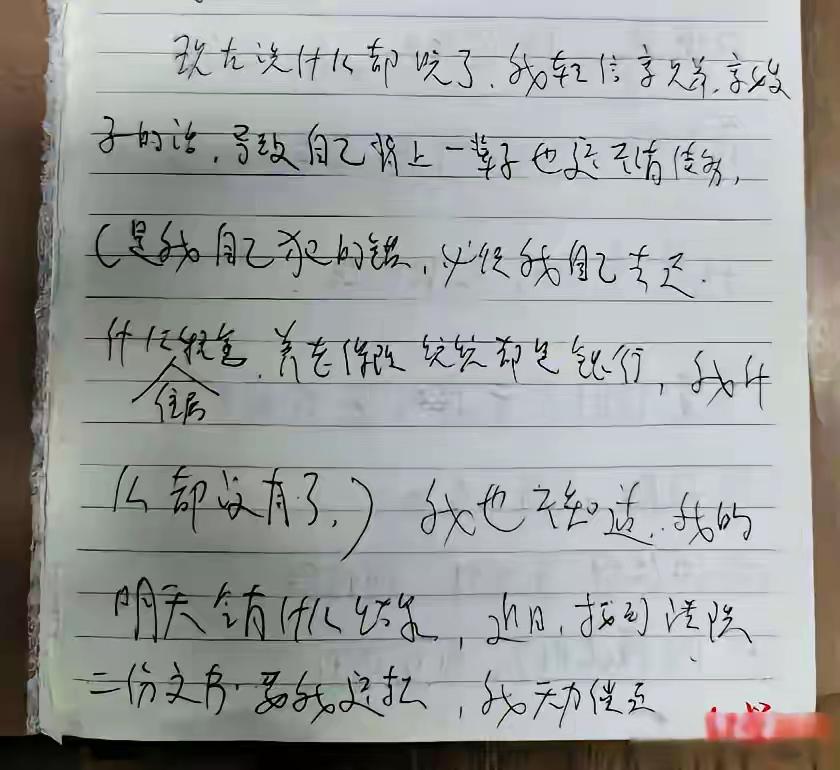 现在说什么都晚了，我轻信亨兄弟，亨嫂
子的话，导致自己背上一辈子也还不清债务，
（是我自己犯的错，必须我自己去还.
什么
住房
养老保险统统都是银行，我什
么都没有了，）我也不知道，我的
明天会有什么结果，近日，接到法院
二份文书.要我还款，我无力偿还